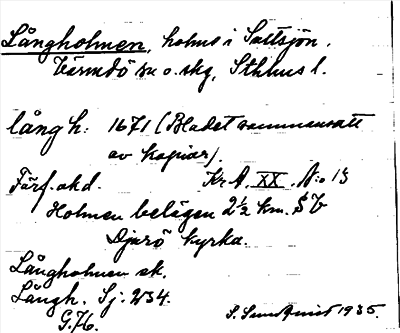 Långholmen, holme i Saltsjön.
Värmdö sn o. skg, Sthlms l.
långh: 1671 (Bladet sammansatt
av kopior).
Förf. okd. Kr A. XX. N:o 13
Holmen belägen 2½ km. S V
Djurö kyrka.
Långholmen ek.
Långh. Sj: 234.
G. 76.
S. Sundquist 1935.